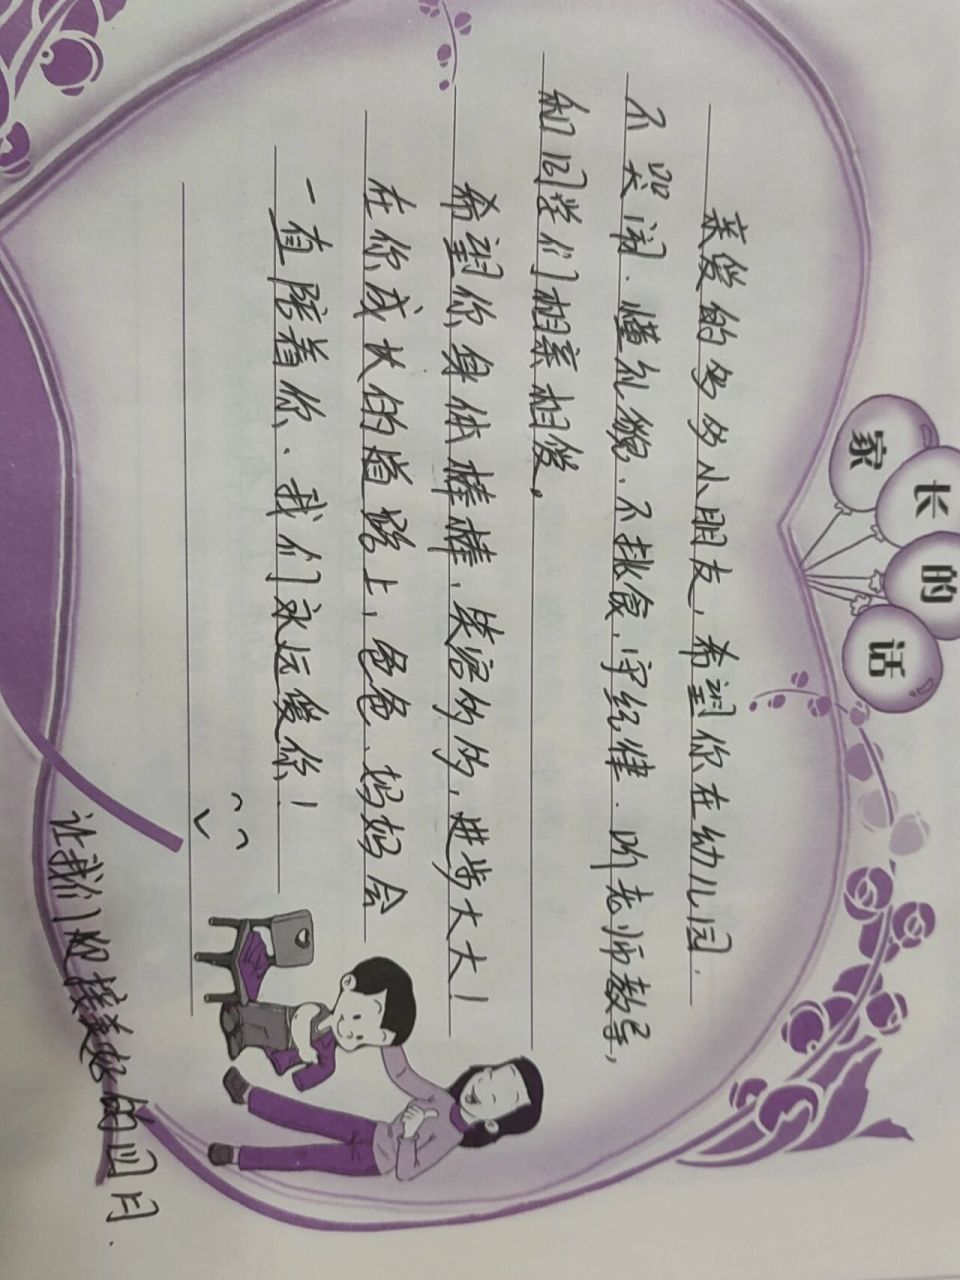 家长的话
亲爱的多多小朋友，希望你在幼儿园．
不哭闹．懂礼貌、不挑食、守纪律．听老师教导，
和同学们相亲相爱。
希望你身体棒棒，笑容多多，进步大大！
在你成长的道路上，爸爸、妈妈会
一直陪着你．我们永远爱你！
让我们迎接美好的四月．